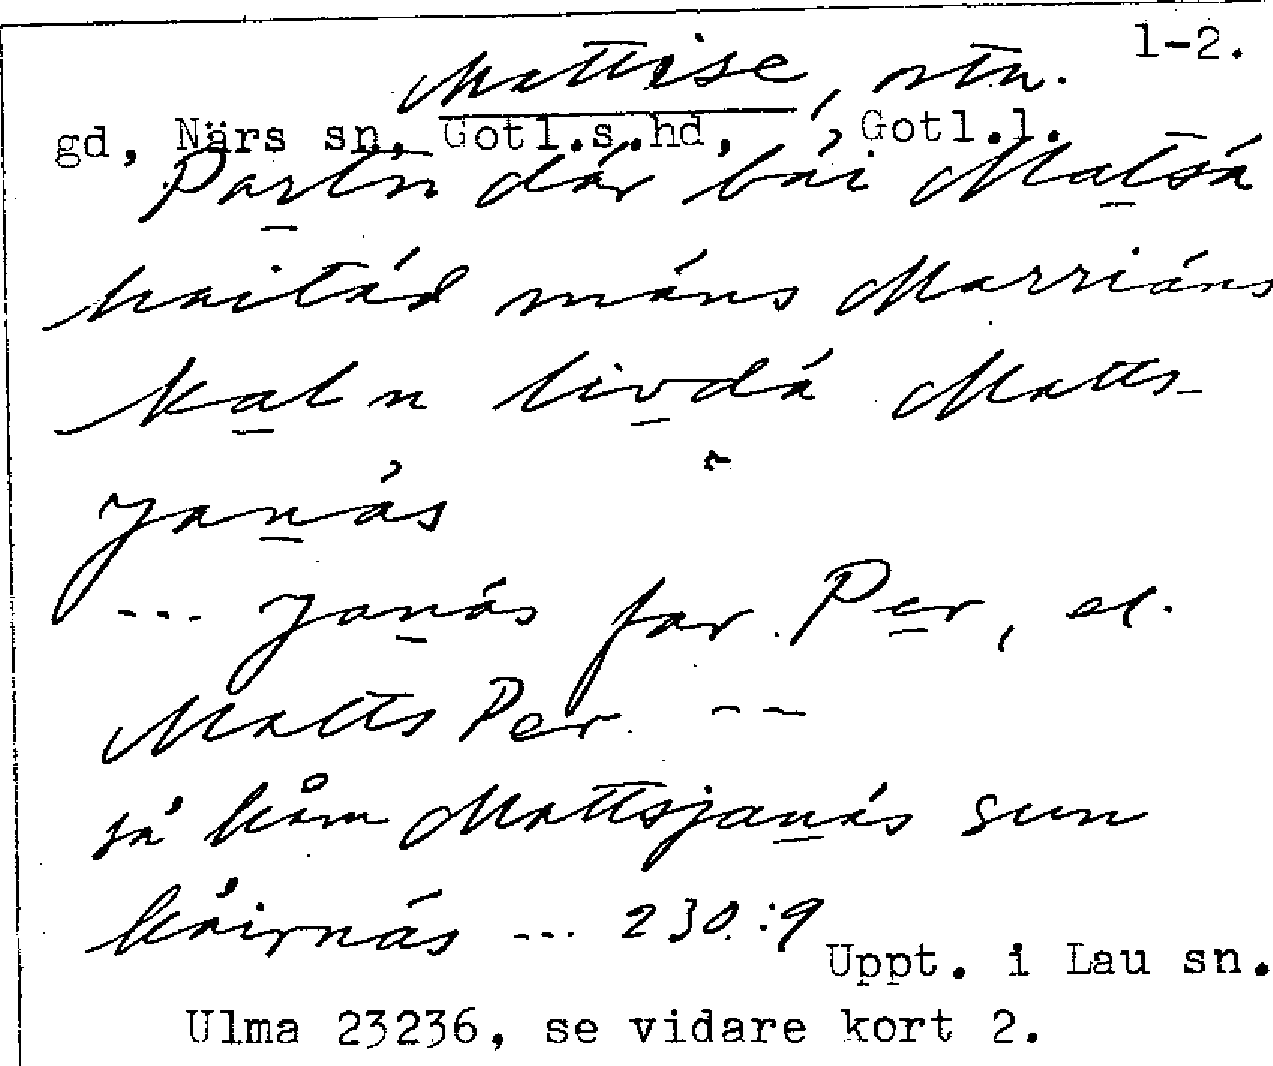 1-2.
Mattise, stn.
gd, Närs sn, Gotl.s.hd, Gotl.l.
Partn där bäi Matsä
haitäd mäns Marriäns
Kaln livdä Matts-
janäs
... janäs far Per, el.
Matts Per. --
sä kåm Mattsjanäs sun
käirnäs ... 230:9
Uppt. i Lau sn.
Ulma 23236, se vidare kort 2.